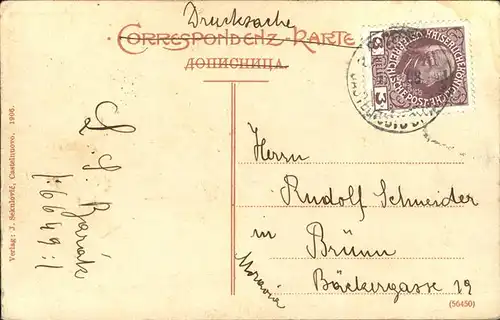 Drucksache
CORRESPONDENZ-KARTE
ДОПИСНИЦА
KAISERLICHE KÖNIGLICHE
ÖSTERREICHISCHE POST
3 3
Verlag: J. Sekulović, Castelnuovo. 1906.
Barák
Herrn
Rudolf Schneider
in
Brünn
Moravia
Bäckergasse 19
(56450)